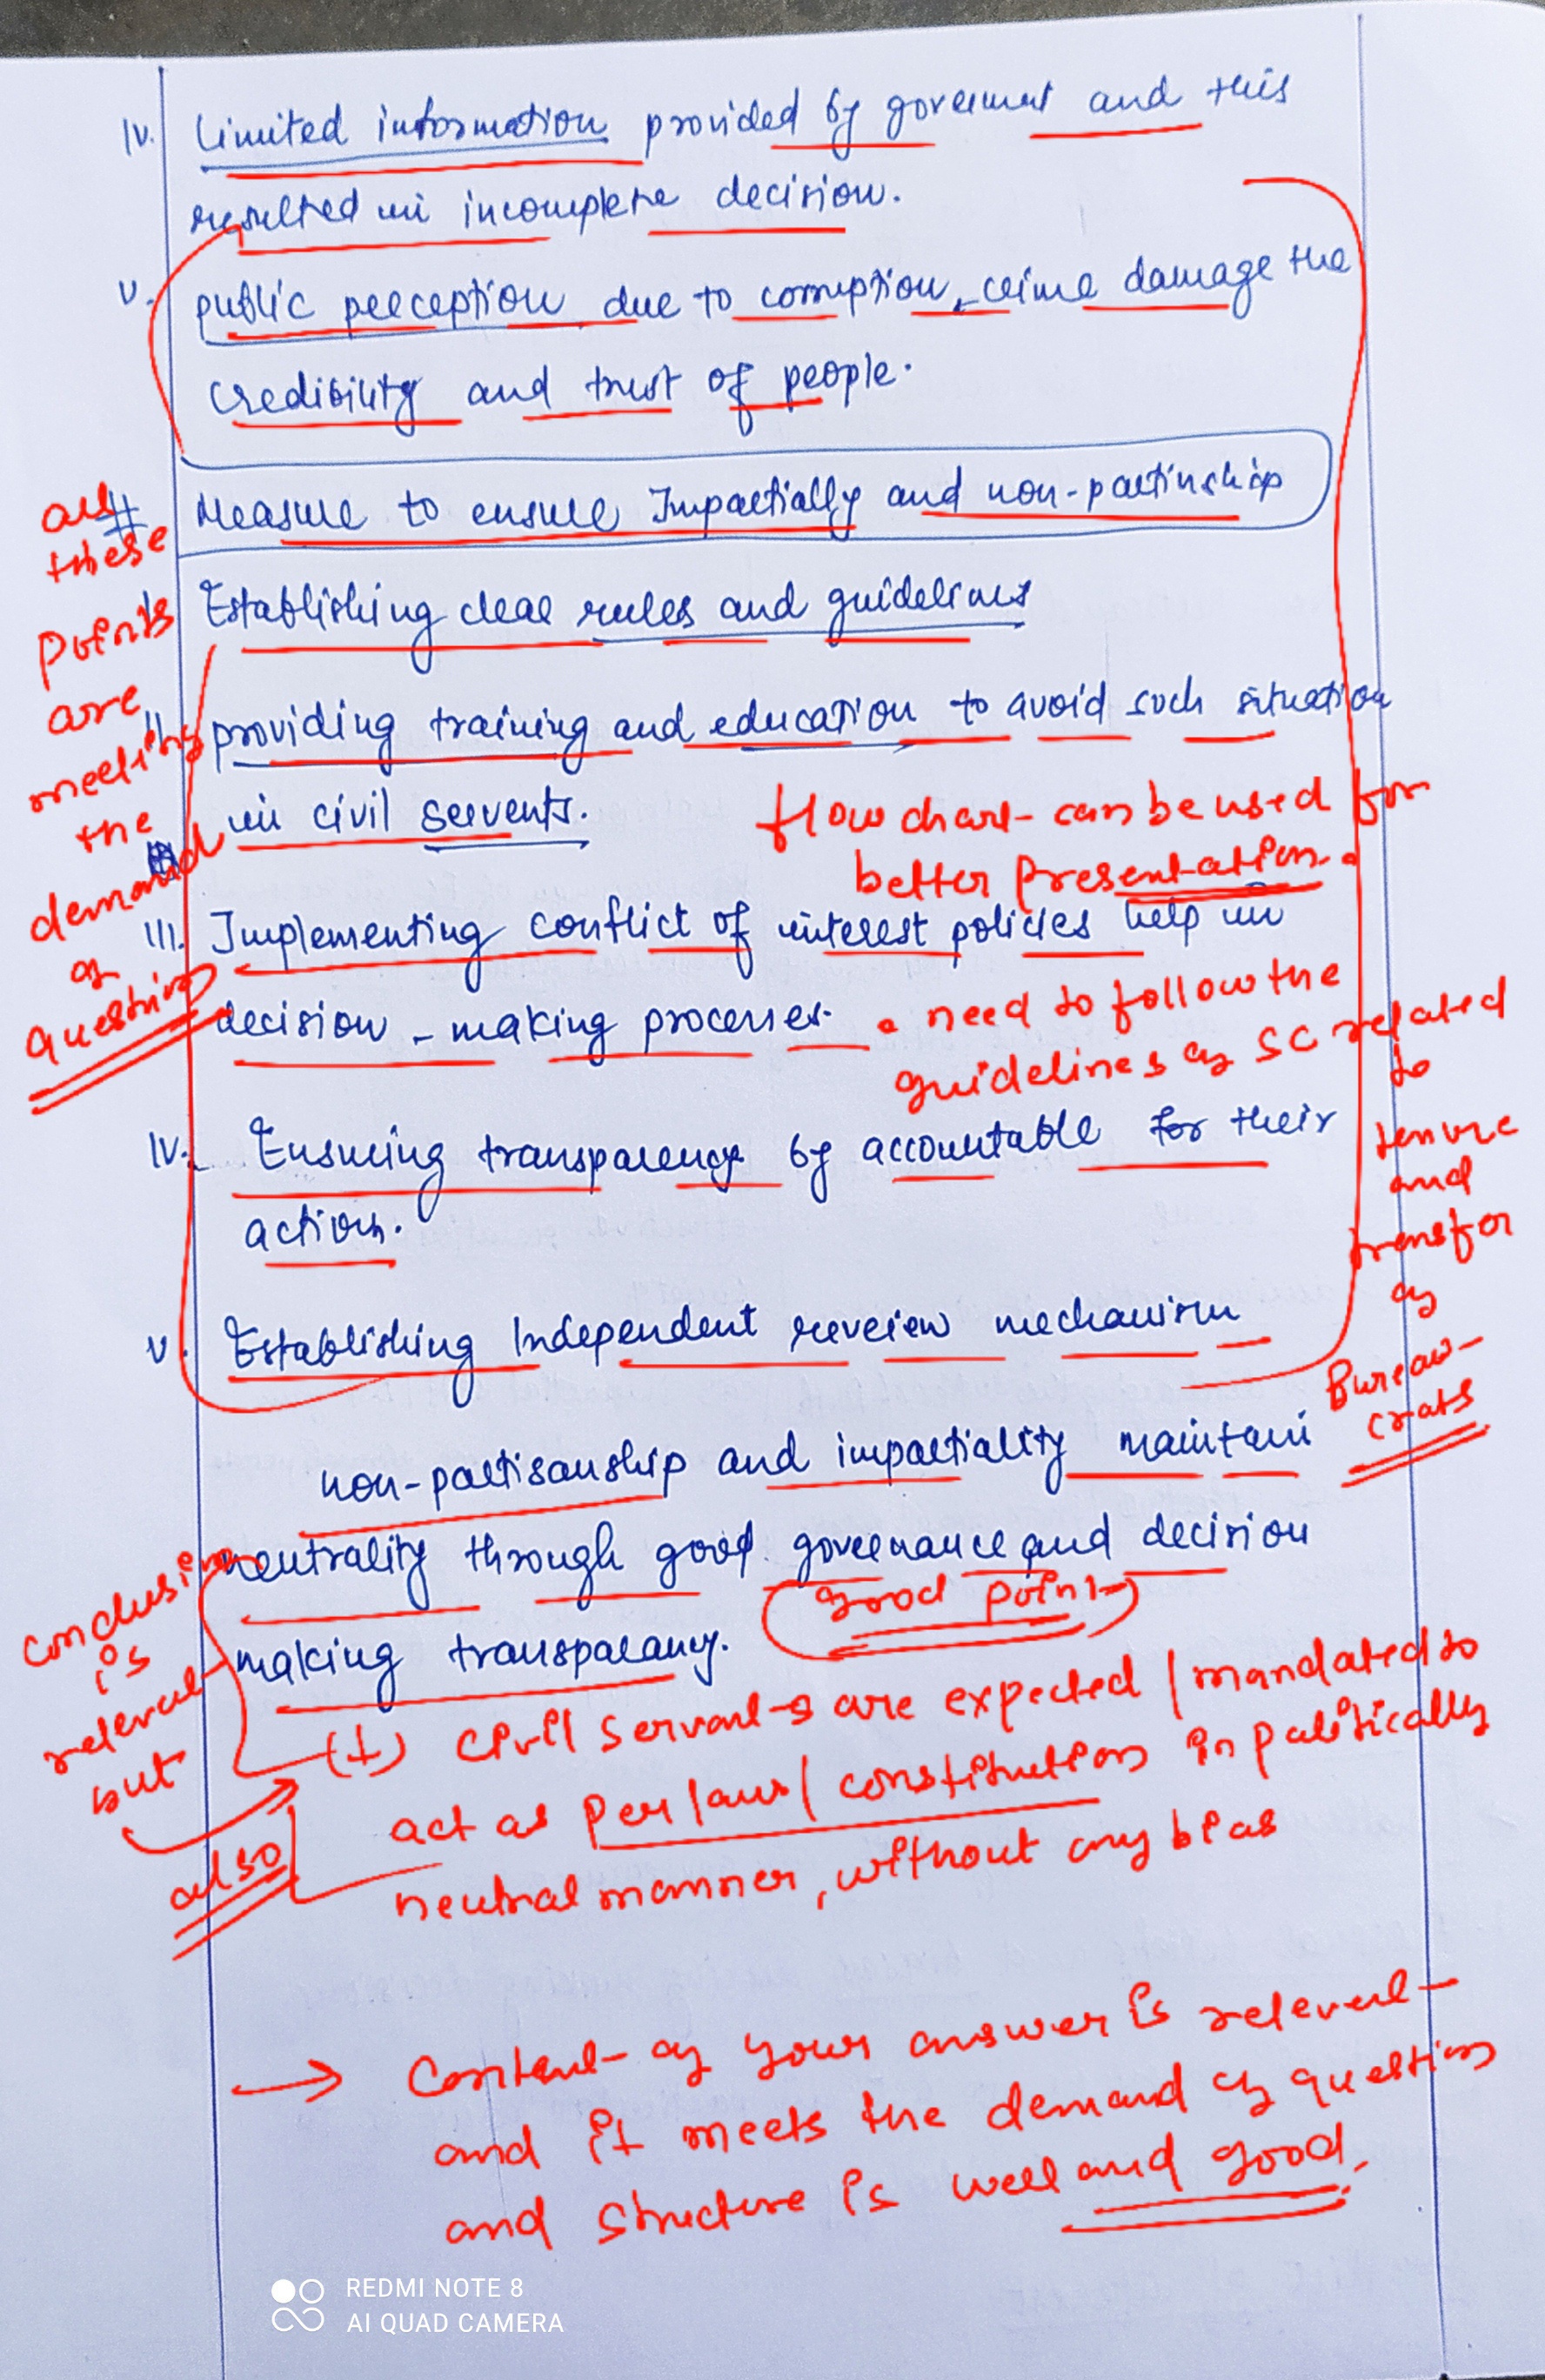 IV. Limited information provided by goverment and this
resulted in incomplete decision.
V. public perception due to corruption, crime damage the
credibility and trust of people.
# Measure to ensure Impartially and non-partinship
all
these
points
are
meeting
the
demand
of
question
I. Establishing clear rules and guidelines
II. providing training and education to avoid such situation
in civil servents.
Flow chart can be used for
better presentation.
III. Implementing conflict of interest policies help in
decision-making processes.
• need to follow the
guidelines of SC related
to
tenure
and
transfer
of
Bureau-
crats
IV. Ensuring transparency by accountable for their
actions.
V. Establishing Independent reveiew mechanism
non-partisanship and impartiality maintain
neutrality through good governance and decision
making transparancy.
Good point
conclusion
is
relevant
but
also
(+) Civil servants are expected / mandated to
act as per law / constitution in politically
neutral manner, without any bias
→ Content of your answer is relevent
and it meets the demand of question
and structure is well and good.
REDMI NOTE 8
AI QUAD CAMERA